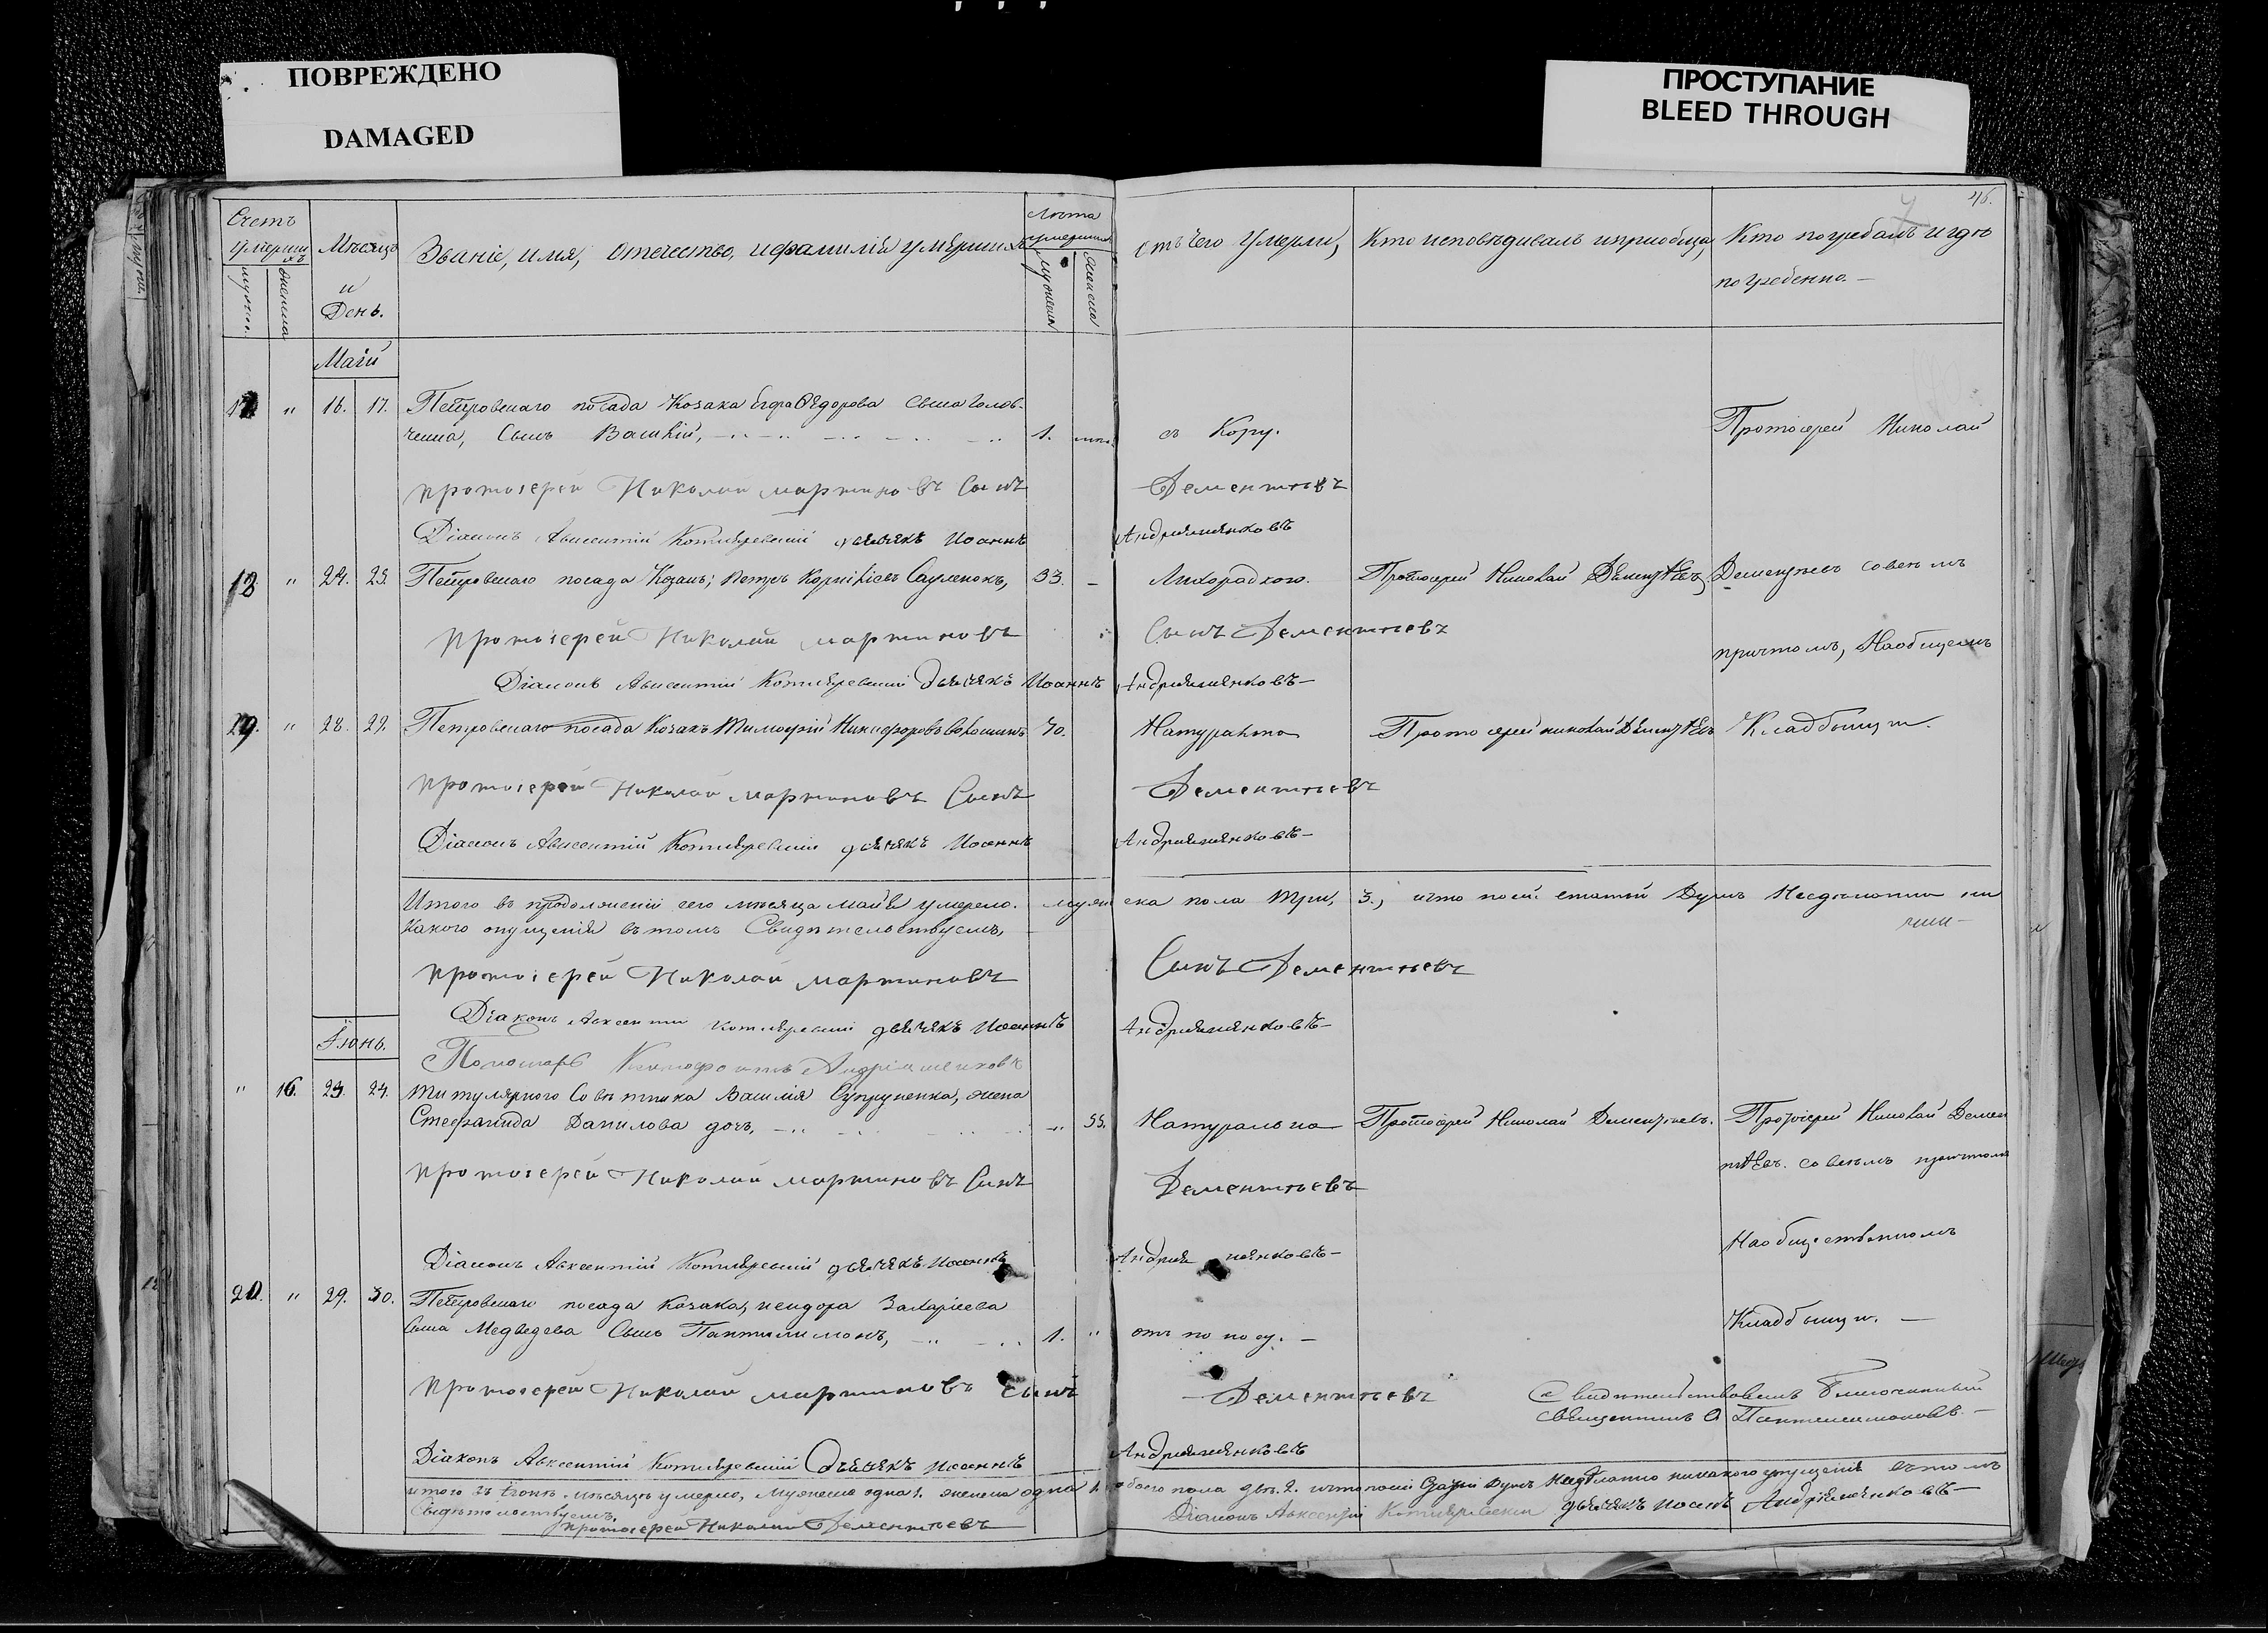 ПОВРЕЖДЕНО
DAMAGED
ПРОСТУПАНИЕ
BLEED THROUGH
46.
Счетъ
умерших
Мѣсяцъ
и
День.
Званіе, имя, отчество, и фамилія умершихъ
Лѣта
умершихъ
отъ чего умерли,
Кто исповѣдивалъ и приобща,
Кто погребалъ и гдѣ
погребенно.
мужеска
женска
Маій
16. 17. Петровскаго посада Козака Егора Ѳедорова сына Голов-
ченка, Сынъ Василій, 1.
съ Кору.
Протоіерей Николай
протоіерей Николай мартиновъ Сынъ Дементьевъ
Діаконъ Авксентій Котляревскій дьячекъ Иоаннъ Андріяшенковъ
18 " 24. 25. Петровскаго посада Козакъ, Петръ Корніліевъ Сауленокъ, 33. Лихорадкою. Протоіерей Николай Дементьевъ, Дементьевъ со всѣмъ
протоіерей Николай мартиновъ Сынъ Дементьевъ
причтомъ, На общемъ
Діаконъ Авксентій Котляревскій дьячекъ Иоаннъ Андріяшенковъ
19. " 28. 29. Петровскаго посада Козакъ Тимофій Никифоровъ Волошинъ 70. Натурально Протоіерей николай Дементьевъ Кладбыщи.
протоіерей Николай мартиновъ Сынъ Дементьевъ
Діаконъ Авксентій Котляревскій дьячекъ Иоаннъ Андріяшенковъ
Итого въ продолженіи сего мѣсяца маія умерло. мужеска пола три, 3., что по сей статіи Душъ Нездѣланно ни
какого опущенія въ томъ Свидѣтельствуемъ,
протоіерей Николай мартиновъ Сынъ Дементьевъ
Діаконъ Авксентій Котляревскій дьячекъ Иоаннъ Андріяшенковъ
Пономарь Ксенофонтъ Андріяшенковъ
Іюнь.
" 16. 23. 24. Титулярного Совѣтника Василія Супруненка, жена
Стефанида Данилова дочь, 55. Натурально Протоіерей Николай Дементьевъ. Протоіерей Николай Демен
тьевъ. со всѣмъ причтомъ
протоіерей Николай мартиновъ Сынъ Дементьевъ
На общественномъ
Діаконъ Авксентій Котляревскій дьячекъ Иоаннъ Андріяшенковъ
20. " 29. 30. Петровскаго посада Козака, исидора Захаріева
Сына Медведева Сынъ Пантилимонъ, 1. " отъ поносу.
Кладбыщи.
протоіерей Николай мартиновъ сынъ Дементьевъ
Свидѣтельствовалъ Благочинный
Священникъ Пантелеимоновъ
Діаконъ Авксентій Котляревскій Дьячекъ Иоаннъ Андріяшенковъ
итого въ іюнѣ мѣсяцѣ умерло, Мужеска одна 1. женска одна 1. обоего пола двѣ. 2. что по сей Статіи Душъ Нездѣланно никакого упущенія въ томъ
Свидѣтельствуемъ.
протоіерей Николай Дементьевъ
Діаконъ Авксентій Котляревскій дьячекъ Иоаннъ Андріяшенковъ